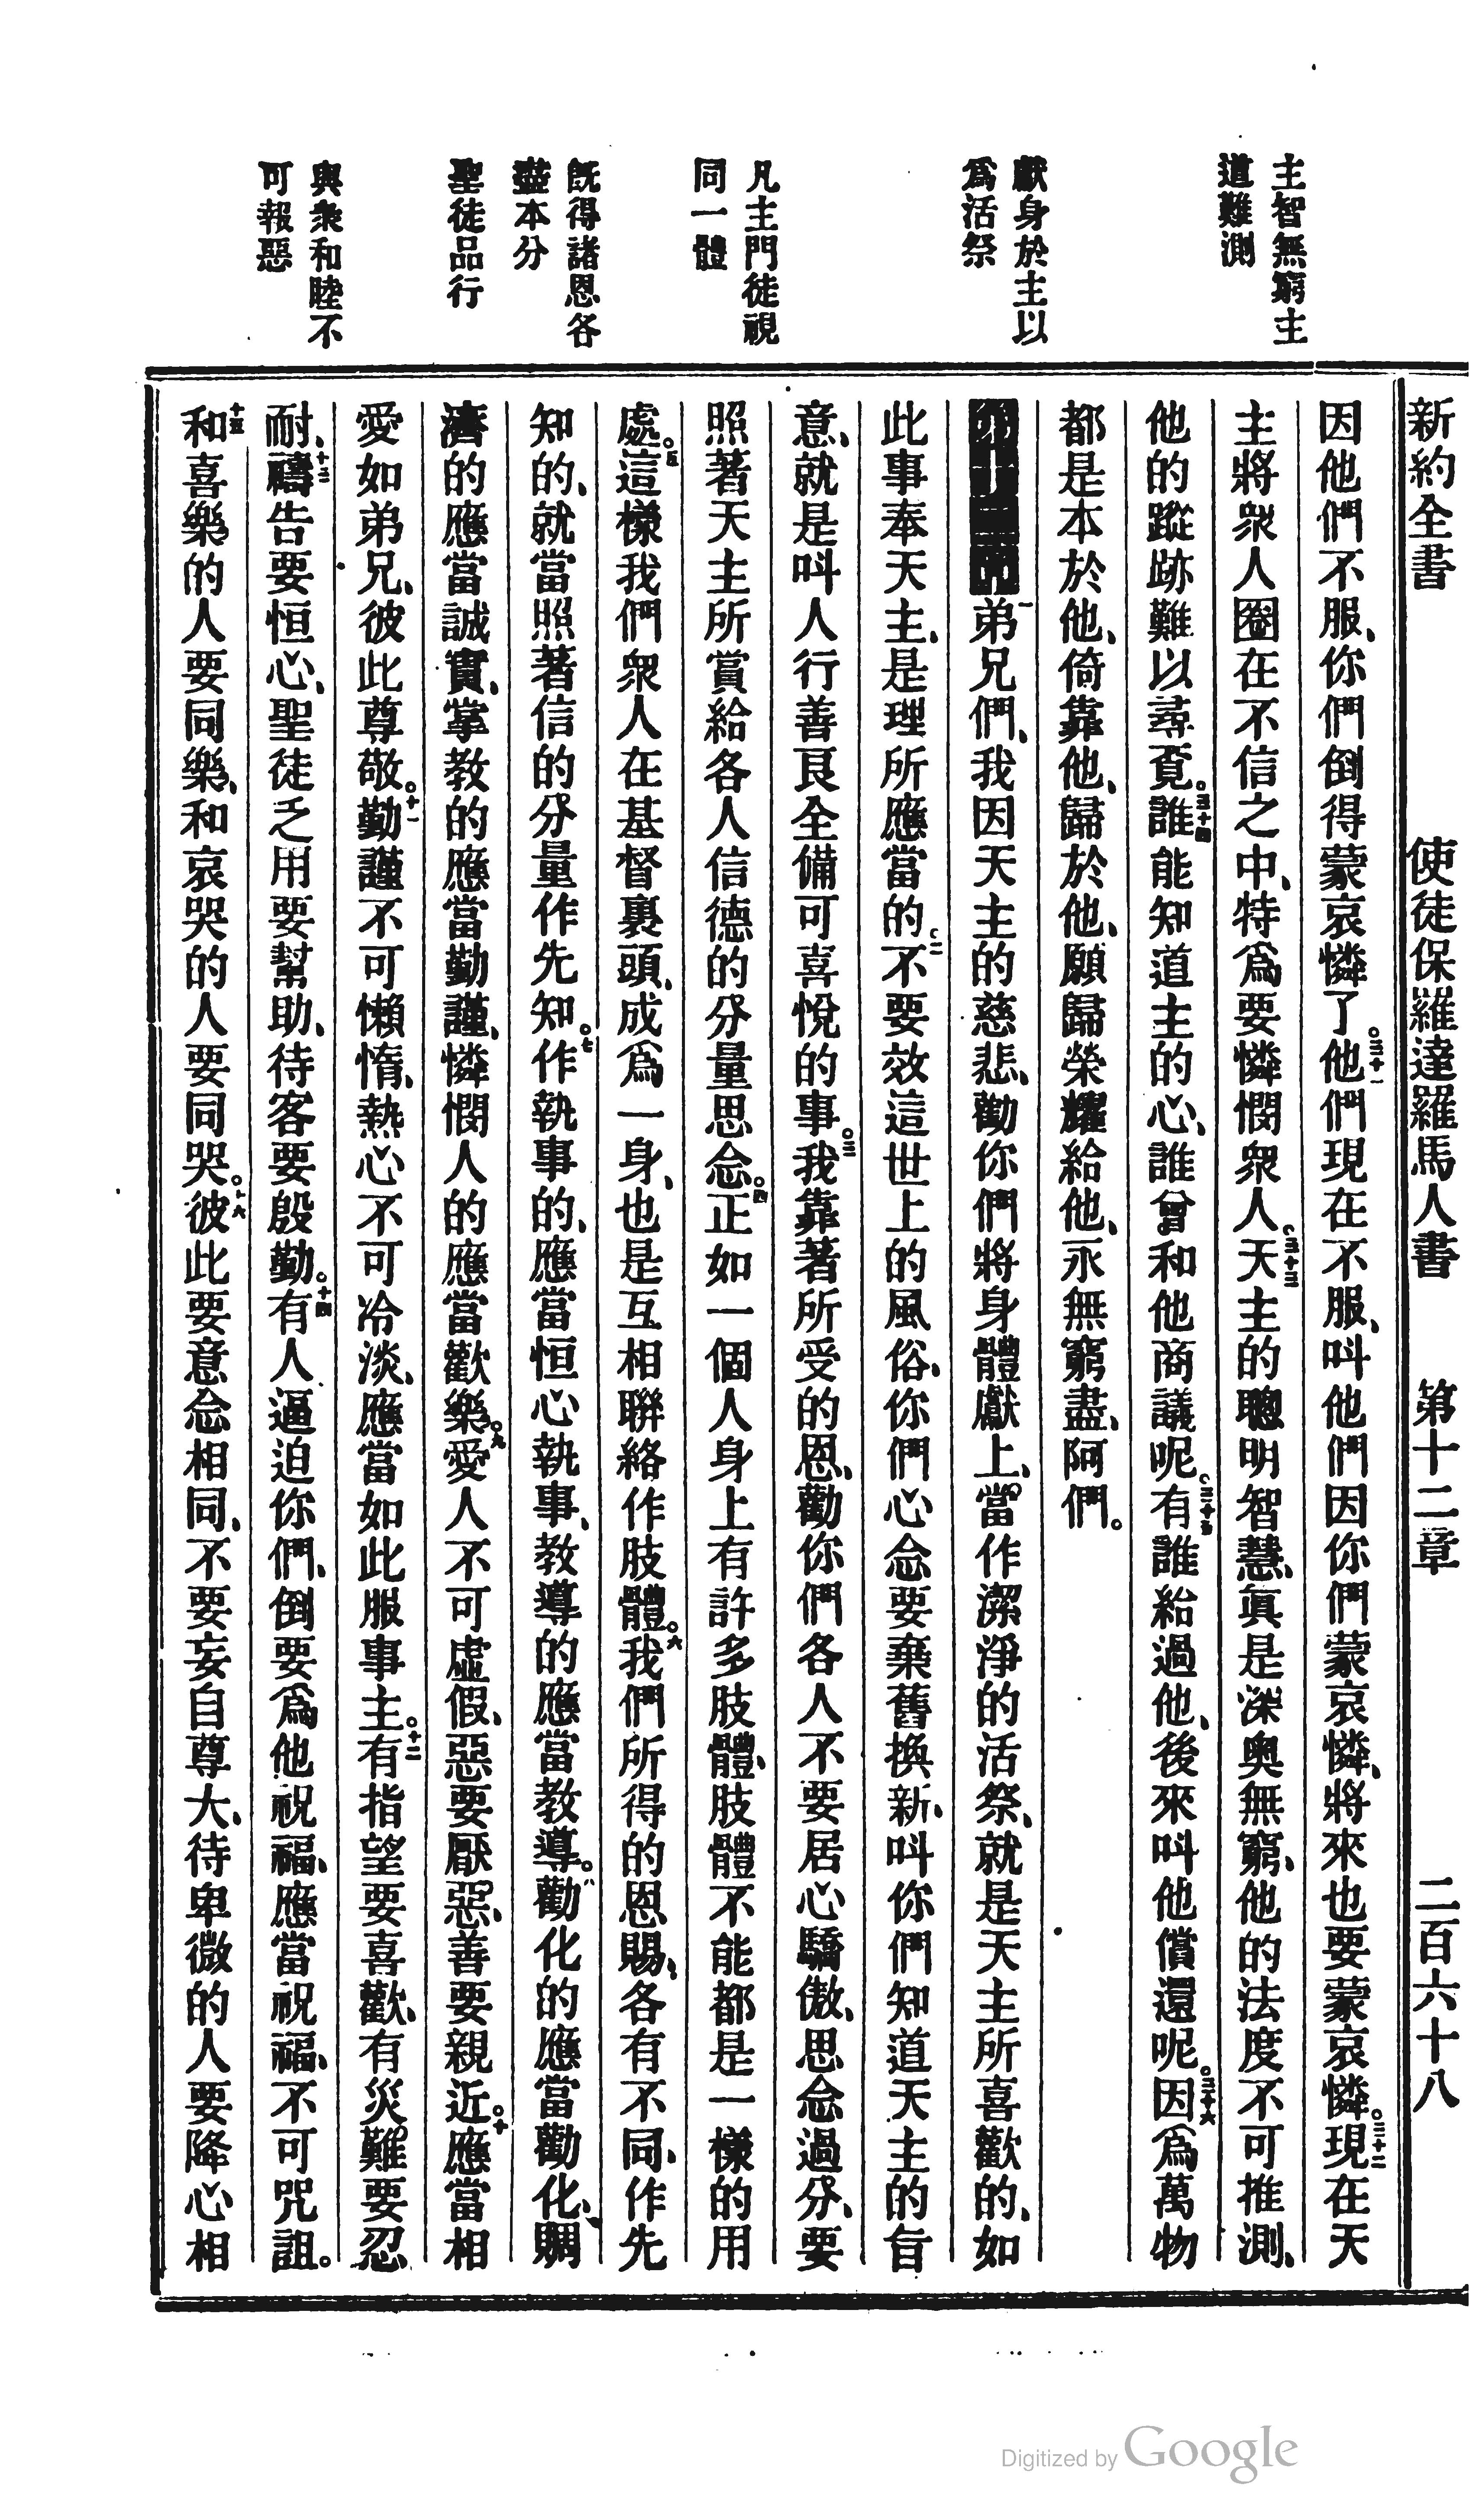 新約全書　使徒保羅達羅馬人書　第十二章　二百六十八
主智無窮主
道難測
獻身於主以
爲活祭
凡主門徒視
同一體
旣得諸恩各
盡本分
聖徒品行
與衆和睦不
可報惡
因他們不服、你們倒得蒙哀憐了。三十一他們現在不服、叫他們因你們蒙哀憐、將來也要蒙哀憐。三十二現在天
主將衆人圈在不信之中、特爲要憐憫衆人。三十三天主的聰明智慧、眞是深奧無窮、他的法度不可推測、
他的蹤跡難以尋覓。三十四誰能知道主的心、誰曾和他商議呢。三十五有誰給過他、後來叫他償還呢。三十六因爲萬物
都是本於他、倚靠他、歸於他、願歸榮耀給他、永無窮盡、阿們。
第十二章一弟兄們、我因天主的慈悲、勸你們將身體獻上、當作潔淨的活祭、就是天主所喜歡的、如
此事奉天主、是理所應當的。二不要效這世上的風俗、你們心念要棄舊換新、叫你們知道天主的旨
意、就是叫人行善艮全備可喜悅的事。三我靠著所受的恩、勸你們各人不要居心驕傲、思念過分、要
照著天主所賞給各人信德的分量思念。四正如一個人身上有許多肢體、肢體不能都是一樣的用
處。五這樣我們衆人在基督裏頭、成爲一身、也是互相聯絡作肢體。六我們所得的恩賜、各有不同、作先
知的、就當照著信的分量作先知。七作執事的、應當恒心執事、教導的應當教導。八勸化的應當勸化、賙
濟的應當誠實、掌教的應當勤謹、憐憫人的應當歡樂。九愛人不可虛假、惡要厭惡、善要親近。十應當相
愛如弟兄、彼此尊敬。十一勤謹不可懶惰、熱心不可冷淡、應當如此服事主。十二有指望要喜歡、有災難要忍
耐、十三禱告要恒心、聖徒乏用要幫助、待客要殷勤。十四有人逼迫你們、倒要爲他祝福、應當祝福、不可咒詛。
十五和喜樂的人要同樂、和哀哭的人要同哭。十六彼此要意念相同、不要妄自尊大、待卑微的人要降心相
Digitized by Google